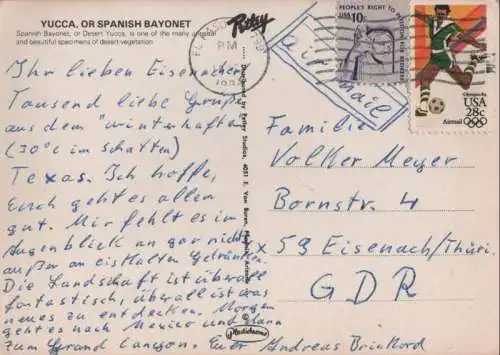 YUCCA, OR SPANISH BAYONET
Spanish Bayonet, or Desert Yucca, is one of the many unusual
and beautiful specimens of desert vegetation.
Petley
EL PASO
PM
Distributed by Petley Studios, 4051 E. Van Buren, Phoenix, Arizona
Plastichrome
PEOPLE'S RIGHT TO PETITION FOR REDRESS
USA 10c
Olympics 84
USA
28c
Airmail
Air mail
Ihr lieben Eisenacher
Tausend liebe Grüße
aus dem "winterhaften"
(30°C im Schatten)
Texas. Ich hoffe,
Euch geht es allen
gut. Mir fehlt es im
Augenblick an gar nichts
außer an eiskalten Getränken.
Die Landschaft ist überall
fantastisch, überall ist was
neues zu entdecken. Morgen
geht es nach Mexico und dann
zum Grand Canyon. Euer Andreas Brinkord
Familie
Volker Meyer
Bornstr. 4
x 59 Eisenach/Thüri.
GDR